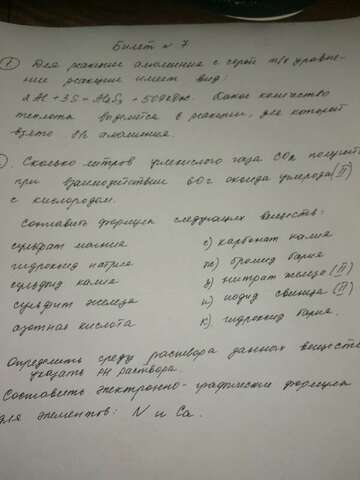 Билет № 7
① Для реакции алюминия с серой т/х уравне-
ние реакции имеет вид:
2Al + 3S = Al2S3 + 509кДж. Какое количество
теплоты выделится в реакции, для которой
взято алюминия.
Сколько литров углекислого газа CO2 получит
при взаимодействии 60г оксида углерода (II)
с кислородом.
Составить формулы следующих веществ:
сульфат магния е) карбонат калия
гидроксид натрия ж) бромид бария
сульфид калия з) нитрат железа (II)
сульфит железа и) иодид свинца (II)
азотная кислота к) гидроксид бария.
Определить среду раствора данных веществ
указать PH раствора.
Составить электронно-графические формулы
для элементов: N и Ca.